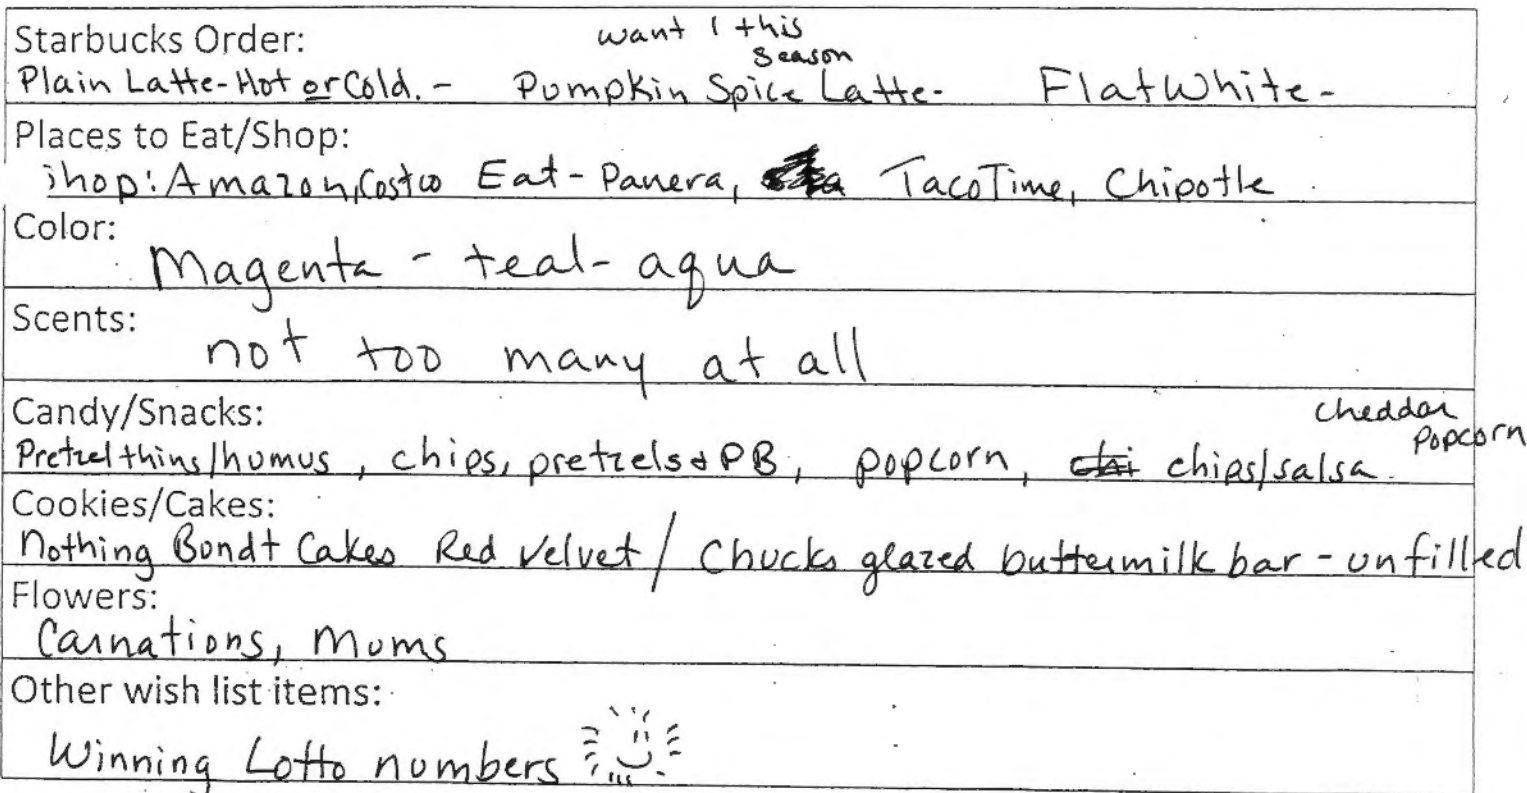 Starbucks Order:
want 1 this
season
Plain Latte-Hot or Cold. - Pumpkin Spice Latte- Flat White-
Places to Eat/Shop:
Shop: Amazon, Costco Eat - Panera, TacoTime, Chipotle
Color:
Magenta - teal- aqua
Scents:
not too many at all
Candy/Snacks:
cheddar
popcorn
Pretzel thins/humus, chips, pretzels & PB, popcorn, chips/salsa.
Cookies/Cakes:
Nothing Bundt Cakes Red Velvet / Chucks glazed buttermilk bar - unfilled
Flowers:
Carnations, Mums
Other wish list items:
Winning Lotto numbers